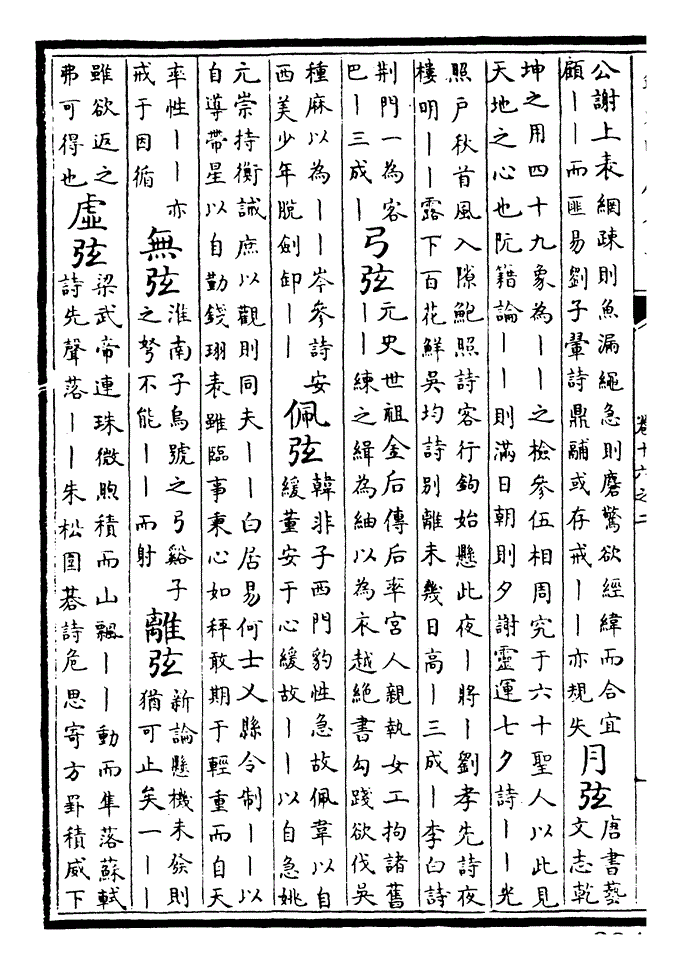 卷十六之二
公謝上表網疎則魚漏繩急則磨驚欲經緯而合宜
顧丨丨而匪易劉子翬詩鼎鼐或存戒丨丨亦規失
月弦
唐書藝
文志乾
坤之用四十九象為丨丨之檢參伍相周究于六十聖人以此見
天地之心也阮籍論丨丨則滿日朝則夕謝靈運七夕詩丨丨光
照戶秋首風入隙鮑照詩客行鉤始懸此夜丨將丨劉孝先詩夜
樓明丨丨露下百花鮮吳均詩別離未幾日高丨三成丨李白詩
荆門一為客
巴丨三成丨
弓弦
元史世祖金后傳后率宮人親執女工拘諸舊
丨丨練之緝為紬以為衣越絕書勾踐欲伐吳
種麻以為丨丨岑參詩安
西美少年脫劍卸丨丨
佩弦
韓非子西門豹性急故佩韋以自
緩董安于心緩故丨丨以自急姚
元崇持衡誡庶以觀則同夫丨丨白居易何士乂縣令制丨丨以
自導帶星以自勤錢珝表雖臨事秉心如秤敢期于輕重而自天
率性丨丨亦
戒于因循
無弦
淮南子烏號之弓谿子
之弩不能丨丨而射
離弦
新論懸機未發則
猶可止矣一丨丨
雖欲返之
弗可得也
虛弦
梁武帝連珠微煦積而山飄丨丨動而隼落蘇軾
詩先聲落丨丨朱松圍碁詩危思寄方罫積威下